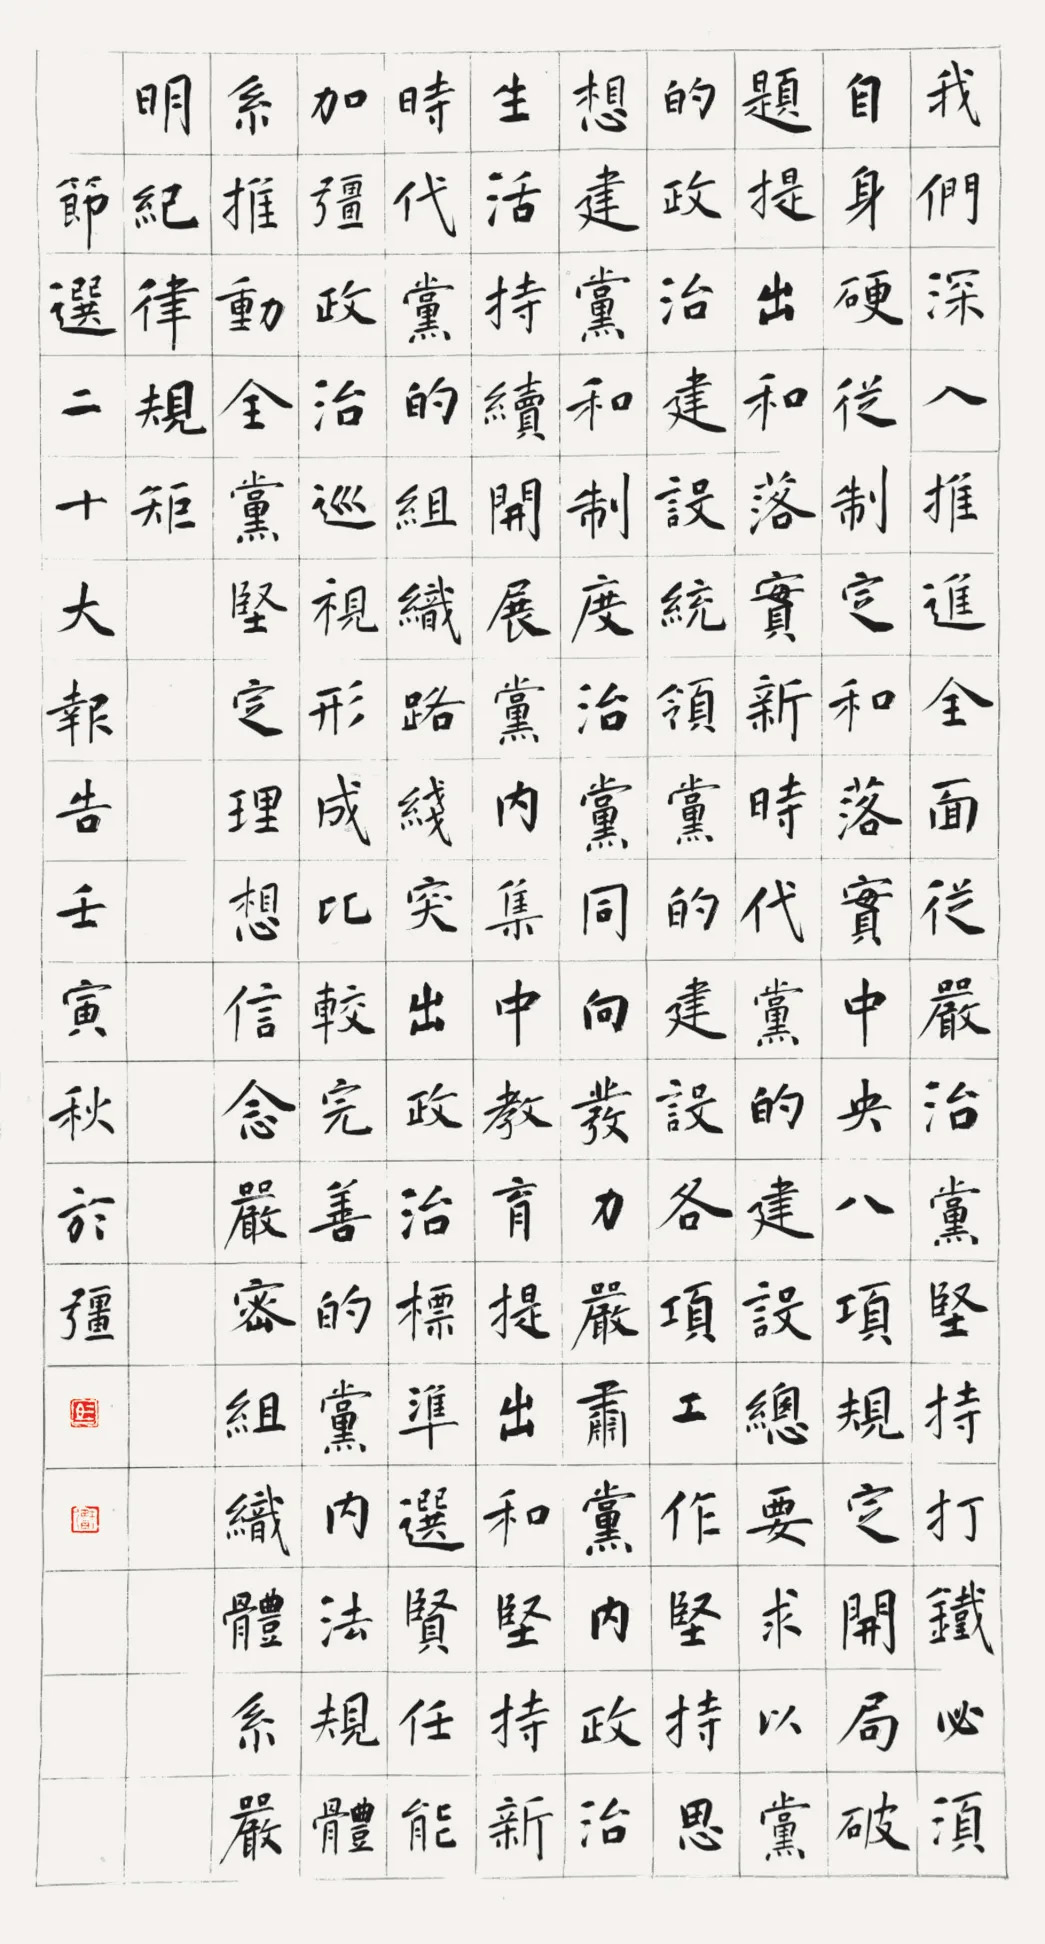 我們深入推進全面從嚴治黨堅持打鐵必須
自身硬從制定和落實中央八項規定開局破
題提出和落實新時代黨的建設總要求以黨
的政治建設統領黨的建設各項工作堅持思
想建黨和制度治黨同向發力嚴肅黨內政治
生活持續開展黨內集中教育提出和堅持新
時代黨的組織路綫突出政治標準選賢任能
加彊政治巡視形成比較完善的黨內法規體
系推動全黨堅定理想信念嚴密組織體系嚴
明紀律規矩
節選二十大報告壬寅秋於彊